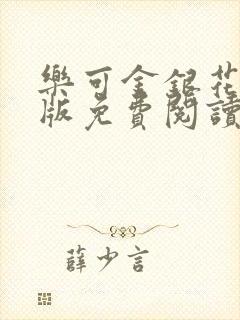 樂可金銀花
版免費閱讀
薛少言